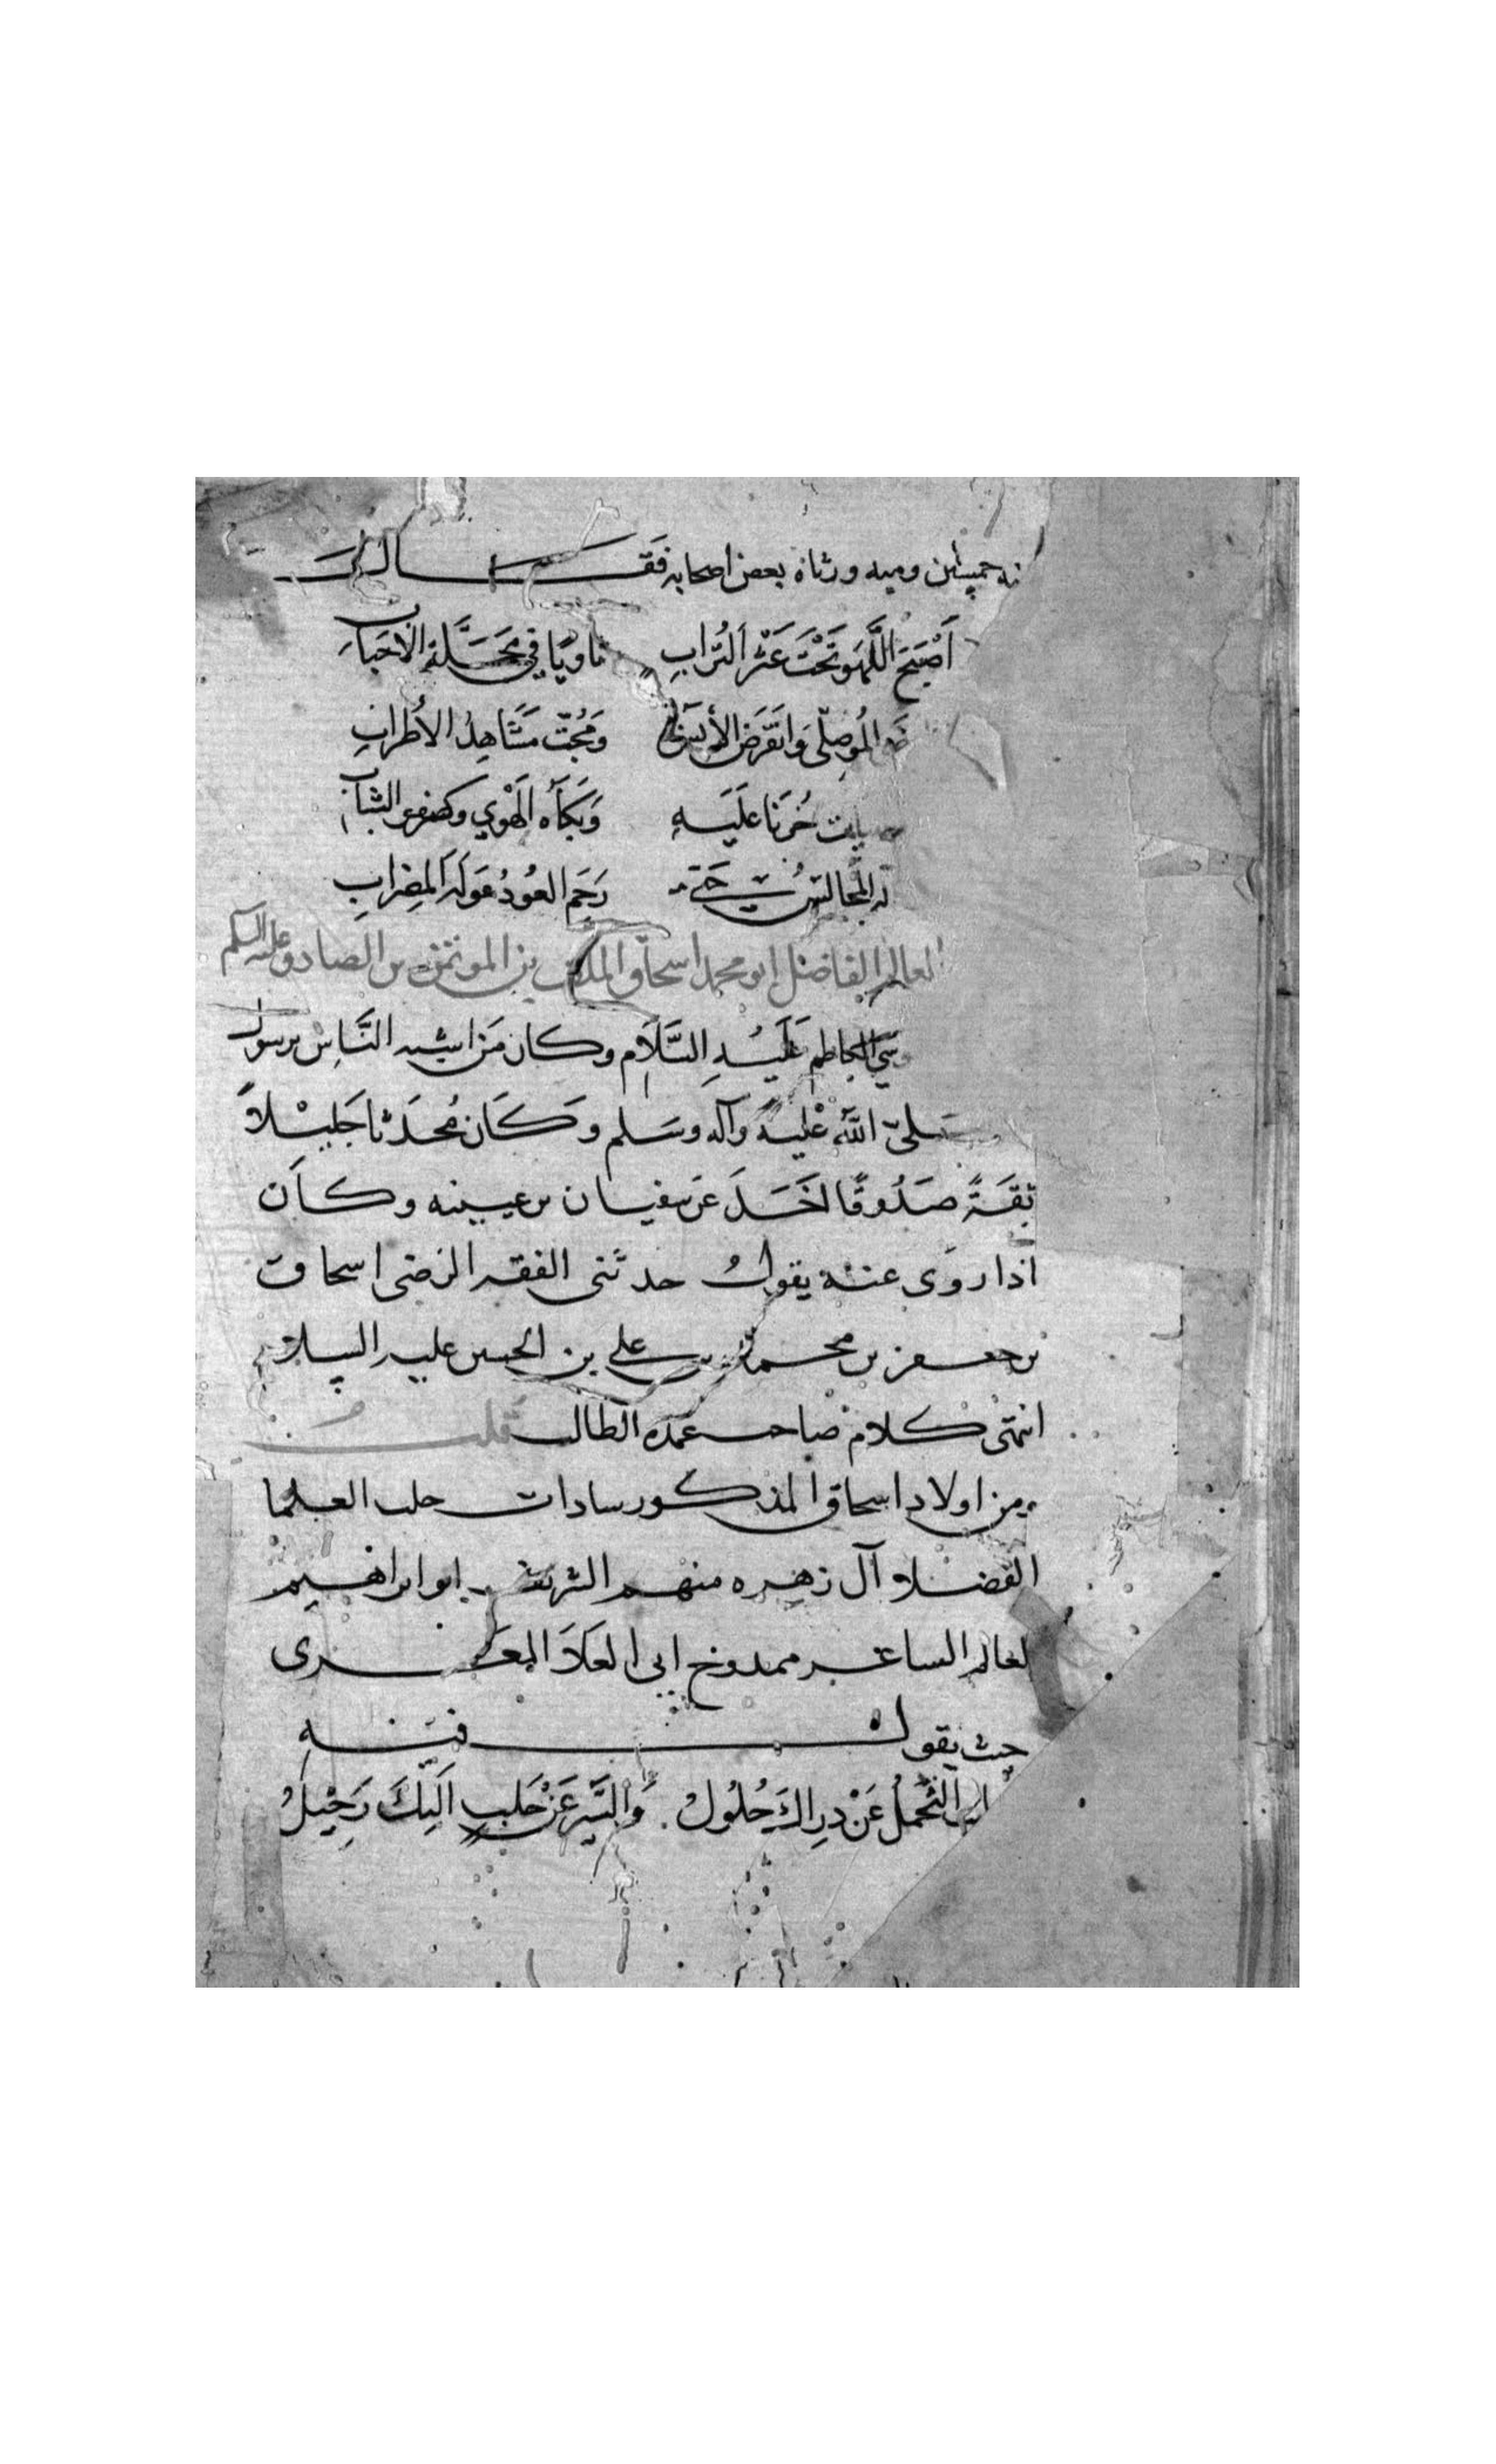 خمسين وميه ورثاه بعض اصحابه فقال
أَصْبَحَ اللَّهو تَحْتَ عَفْرِ التُّرابِ ثاويًا في مَحَلَّةِ الأَحْبابِ
المُوصِلّي وَانقَرَضَ الأُنس وَمُجَّتْ مَشَاهِدُ الأَطْرابِ
حُزنًا عَلَيهِ وَبَكَاهُ الهَوي وصفو الشبابِ
المجالس حَتّى رَحِمَ العُودُ عَوْلَةَ المِضرابِ
العالم الفاضل ابو محمد اسحاق بن الصادق عليه السلم
الكاظم عَلَيهِ السَّلَام وكان مَن اشبه النَّاسِ برسول
صلى اللّه عليه وآله وسَلم وكَان مُحَدثا جَليلاً
ثقَةً صَدُوقًا عَن سفيان بن عيينه وكان
اذا روى عنه يقولُ حدثنى الثقه الرضى اسحاق
بن جعفر بن محمد بن علي بن الحسين عليه السلام
انتهى كلام صاحب عمدة الطالب قلت
ومن اولاد اسحاق المذكور سادات حلب العلما
الفضلا آل زهره منهم الشريف ابو ابراهيم
العالم الشاعر ممدوح ابى العلاَ المعرى
حيث يقول فيه
التَّحَمُّلُ عَنْ ذراكَ حُلُولُ وَالسَّيرُ عَنْ حَلَبٍ اِلَيكَ رَحِيْلُ